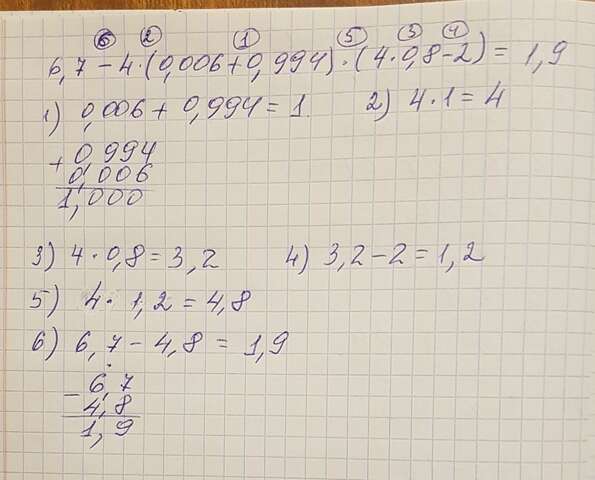 6 2 1 5 3 4
6,7 - 4 · (0,006 + 0,994) · (4 · 0,8 - 2) = 1,9
1) 0,006 + 0,994 = 1. 2) 4 · 1 = 4
+ 0,994
0,006
1,000
3) 4 · 0,8 = 3,2 4) 3,2 - 2 = 1,2
5) 4 · 1,2 = 4,8
6) 6,7 - 4,8 = 1,9
- 6,7
4,8
1,9